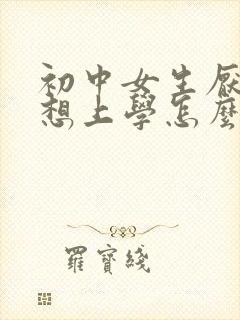 初中女生厭
想上學怎麼
羅寶綫